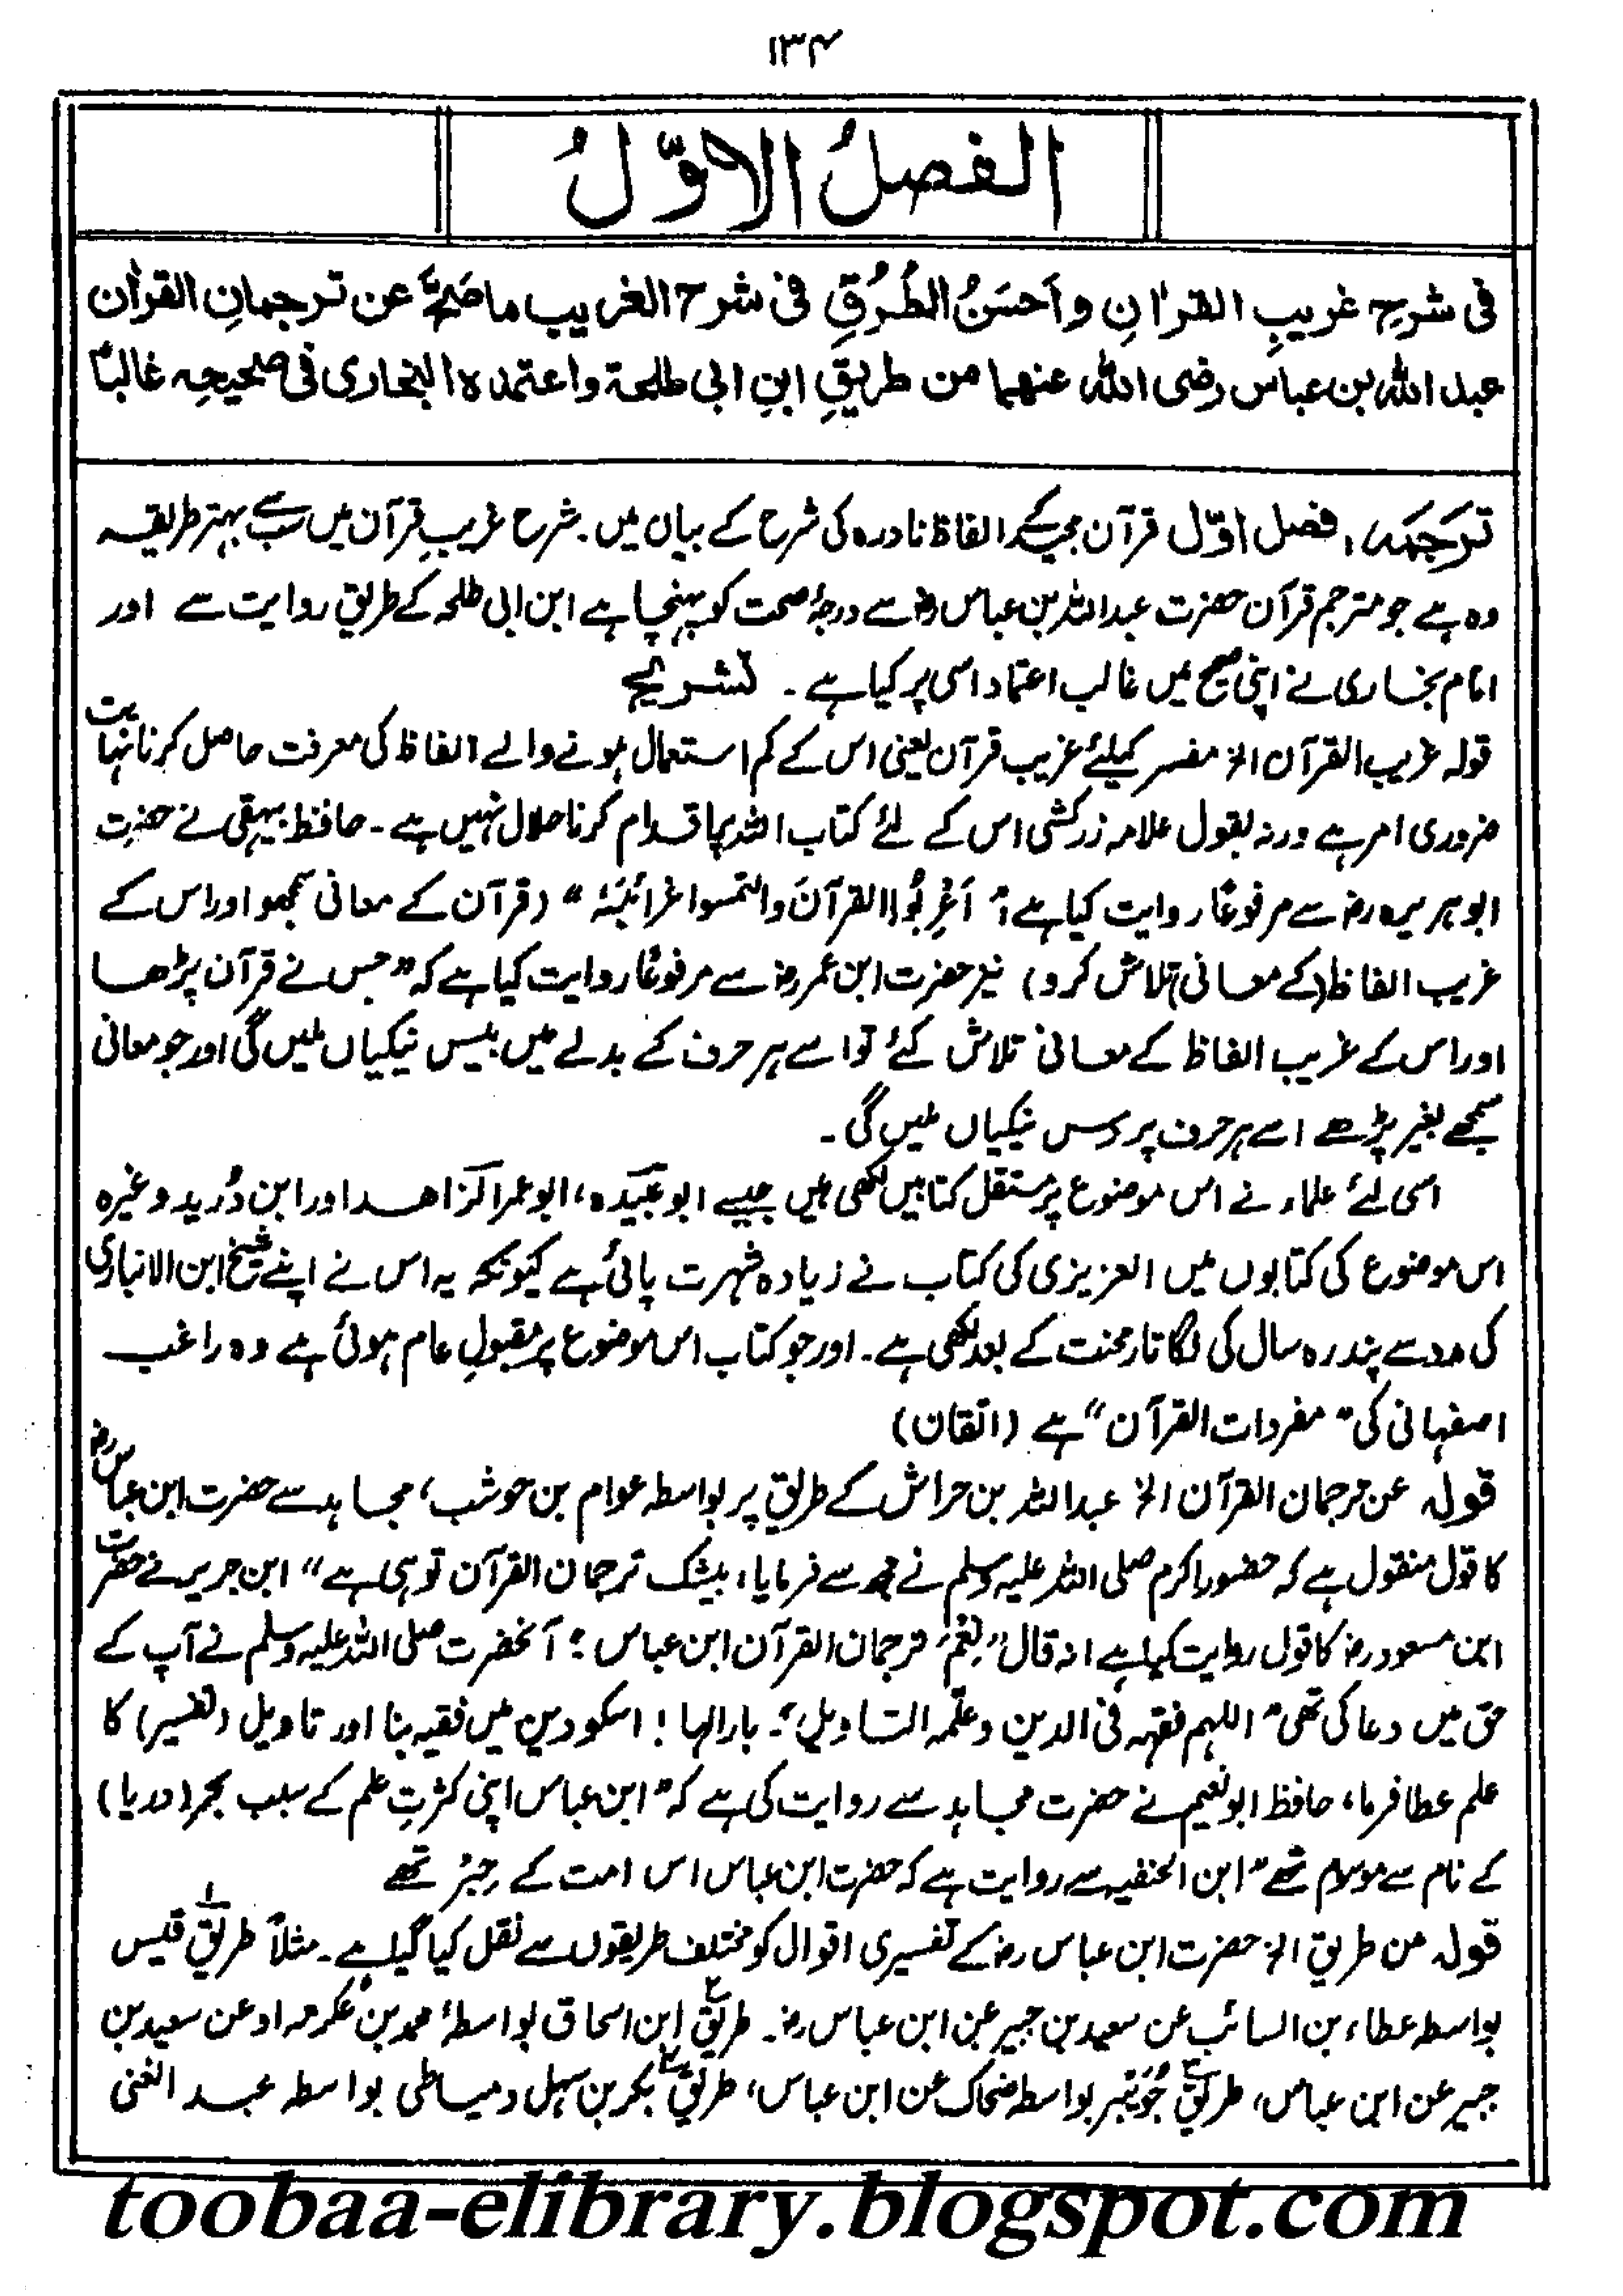 ۱۳۴
الفصلُ الاوّلُ
فی شرحِ غریبِ القراٰنِ واَحسَنُ الطُرُقِ فی شرح الغریب ما صَحَّ عن ترجمانِ القراٰن
عبد اللہ بن عباس رضی اللہ عنھما من طریقِ ابنِ ابی طلحۃ واعتمدہ البخاری فی صحیحِہ غالباً
ترَجَمَہ، فصل اوّل قرآن مجید کے الفاظ نادرہ کی شرح کے بیان میں۔ شرح غریبِ قرآن میں سب سے بہتر طریقہ
وہ ہے جو مترجم قرآن حضرت عبداللہ بن عباس رض سے درجۂ صحت کو پہنچا ہے ابن ابی طلحہ کے طریق روایت سے اور
امام بخاری نے اپنی صحیح میں غالب اعتماد اسی پر کیا ہے۔ تشریح
قولہ غریب القرآن الخ مفسر کیلئے غریب قرآن یعنی اس کے کم استعمال ہونے والے الفاظ کی معرفت حاصل کرنا نہایت
ضروری امر ہے ورنہ بقول علامہ زرکشی اس کے لئے کتاب اللہ پر اقدام کرنا حلال نہیں ہے۔ حافظ بیہقی نے حضرت
ابو ہریرہ رض سے مرفوعًا روایت کیا ہے "اَعْرِبُوا القرآنَ والتمسوا غرائبَہٗ" (قرآن کے معانی سمجھو اور اس کے
غریب الفاظ (کے معانی) تلاش کرو) نیز حضرت ابن عمر رض سے مرفوعًا روایت کیا ہے کہ "جس نے قرآن پڑھا
اور اس کے غریب الفاظ کے معانی تلاش کئے تو اسے ہر حرف کے بدلے میں بیس نیکیاں ملیں گی اور جو معانی
سمجھے بغیر پڑھے اسے ہر حرف پر دس نیکیاں ملیں گی۔
اسی لئے علماء نے اس موضوع پر مستقل کتابیں لکھی ہیں جیسے ابو عبیدہ، ابو عمر الزاھد اور ابن دُرید وغیرہ
اس موضوع کی کتابوں میں العزیزی کی کتاب نے زیادہ شہرت پائی ہے کیونکہ یہ اس نے اپنے شیخ ابن الانباری
کی مدد سے پندرہ سال کی لگاتار محنت کے بعد لکھی ہے۔ اور جو کتاب اس موضوع پر مقبولِ عام ہوئی ہے وہ راغب
اصفہانی کی "مفردات القرآن" ہے (اتقان)
قولہ عن ترجمان القرآن الخ عبداللہ بن حراش کے طریق پر بواسطہ عوام بن حوشب، مجاہد سے حضرت ابن عباس رض
کا قول منقول ہے کہ حضور اکرم صلی اللہ علیہ وسلم نے مجھ سے فرمایا، بیشک ترجمان القرآن تو ہی ہے" ابن جریر نے حضرت
ابن مسعود رض کا قول روایت کیا ہے انہ قال "نِعْمَ ترجمان القرآن ابن عباس" آنحضرت صلی اللہ علیہ وسلم نے آپ کے
حق میں دعا کی تھی "اللہم فقہہ فی الدین وعلّمہ التاویل"۔ بارالہا! اسکو دین میں فقیہ بنا اور تاویل (تفسیر) کا
علم عطا فرما، حافظ ابونعیم نے حضرت مجاہد سے روایت کی ہے کہ "ابن عباس اپنی کثرتِ علم کے سبب بحر (دریا)
کے نام سے موسوم تھے" ابن الحنفیہ سے روایت ہے کہ حضرت ابن عباس اس امت کے حِبْر تھے
قولہ من طریق الخ حضرت ابن عباس رض کے تفسیری اقوال کو مختلف طریقوں سے نقل کیا گیا ہے۔ مثلاً طریق۱ قیس
بواسطہ عطاء بن السائب عن سعید بن جبیر عن ابن عباس رض۔ طریق۲ ابن اسحاق بواسطۂ محمد بن عکرمہ او عن سعید بن
جبیر عن ابن عباس، طریق۳ جُوَیْبر بواسطہ ضحاک عن ابن عباس، طریق۴ بکر بن سہل دمیاطی بواسطہ عبد الغنی
toobaa-elibrary.blogspot.com